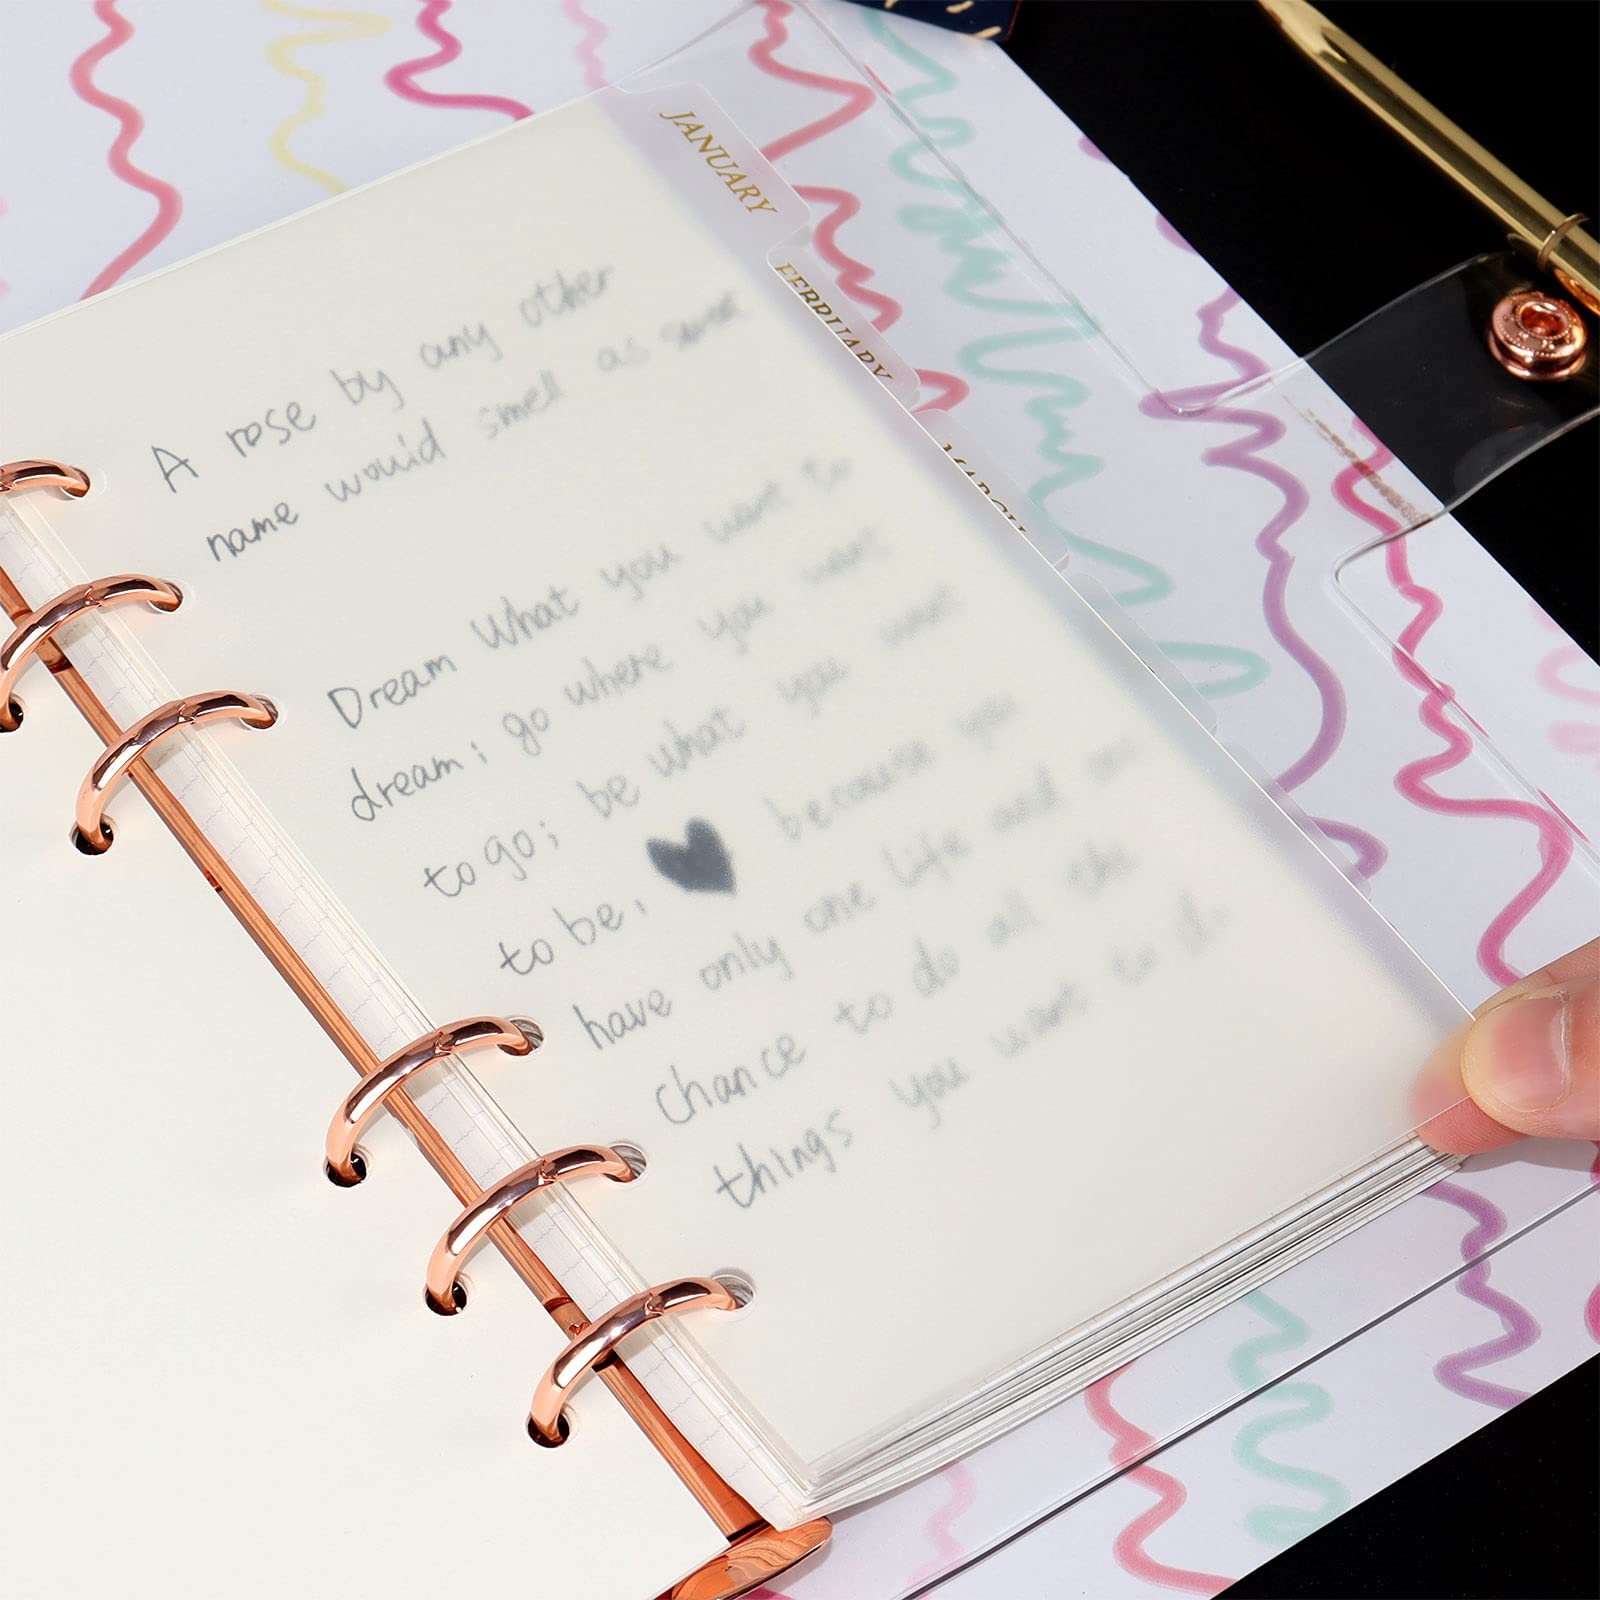 JANUARY
FEBRUARY
MARCH
A rose by any other
name would smell as
Dream What you want to
dream; go where you want
to go; be what you want
to be, because you
have only one life and one
chance to do all the
things you want to do.